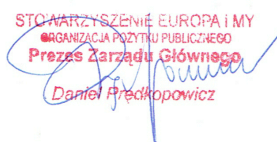 STOWARZYSZENIE EUROPA I MY
ORGANIZACJA POŻYTKU PUBLICZNEGO
Prezes Zarządu Głównego
Daniel Prędkopowicz